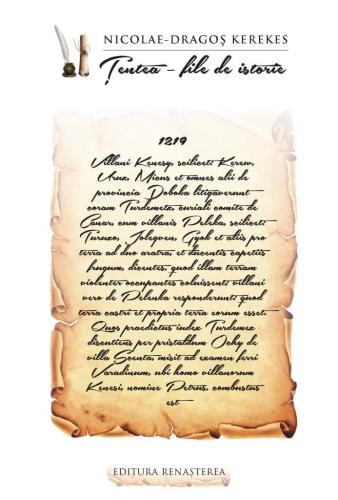 NICOLAE-DRAGOȘ KEREKES
Țentea – file de istorie
1219
Villani Kenesy, scilicet: Kerew,
Uruz, Micus et omnes alii de
provincia Doboka litigaverunt
coram Turdemetz, curiali comite de
Canar, cum villanis Peleka, scilicet:
Turuzo, Jolegven, Gyok et aliis pro
terra ad duo aratra, et ducentis capetiis
frugum, dicentes, quod illam terram
violenter occupantes coluissent: villani
vero de Pelenka responderunt: quod
terra castri et propria terra eorum esset.
Quos praedictus index Turdemez
discutiens per pristaldum Ochy de
villa Scenta, misit ad examen ferri
Varadinum, ubi homo villanorum
Kenesi, nomine Petrus, combustus
est
EDITURA RENAȘTEREA